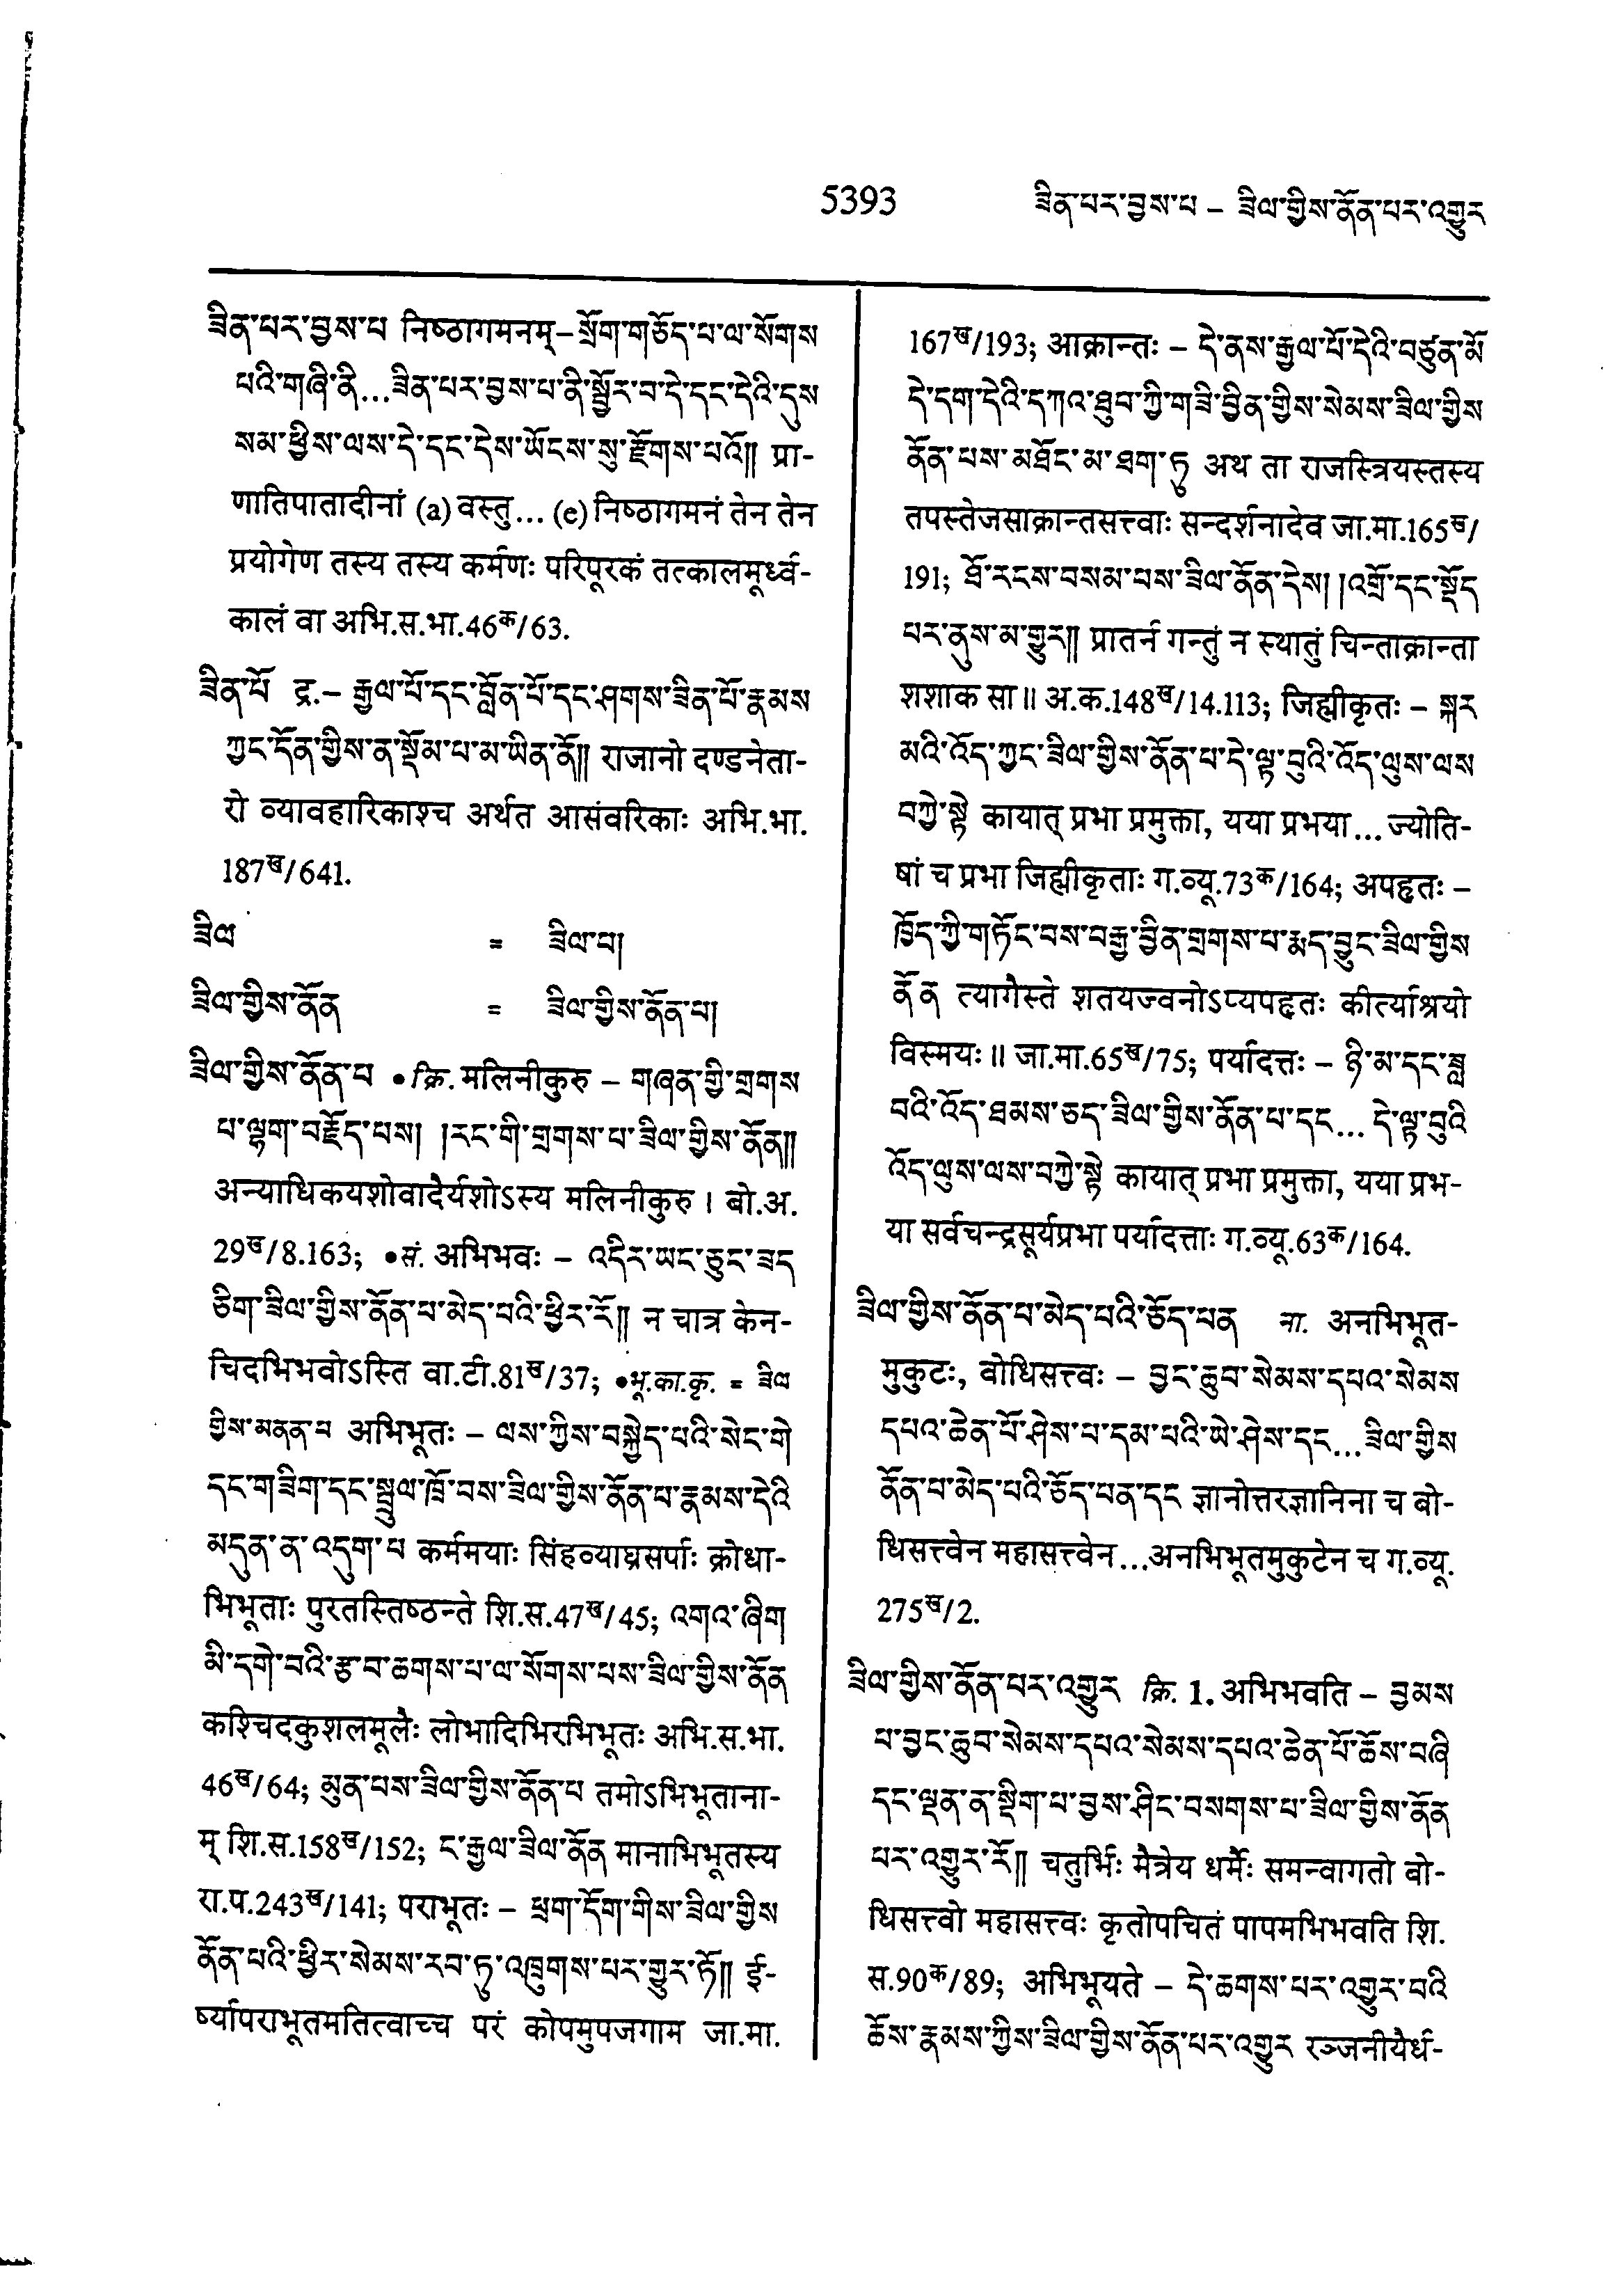 5393
ཟིན་པར་བྱས་པ – ཟིལ་གྱིས་ནོན་པར་འགྱུར
ཟིན་པར་བྱས་པ निष्ठागमनम्–སྲོག་གཅོད་པ་ལ་སོགས
པའི་གཞི་ནི...ཟིན་པར་བྱས་པ་ནི་སྦྱོར་བ་དེ་དང་དེའི་དུས
སམ་ཕྱིས་ལས་དེ་དང་དེས་ཡོངས་སུ་རྫོགས་པའོ།། प्रा-
णातिपातादीनां (a) वस्तु... (e) निष्ठागमनं तेन तेन
प्रयोगेण तस्य तस्य कर्मणः परिपूरकं तत्कालमूर्ध्व-
कालं वा अभि.स.भा.46क/63.
ཟིན་པོ द्र.– རྒྱལ་པོ་དང་བློན་པོ་དང་ཤགས་ཟིན་པོ་རྣམས
ཀྱང་དོན་གྱིས་ན་སྡོམ་པ་མ་ཡིན་ནོ།། राजानो दण्डनेता-
रो व्यावहारिकाश्च अर्थत आसंवरिकाः अभि.भा.
187ख/641.
ཟིལ = ཟིལ་པ།
ཟིལ་གྱིས་ནོན = ཟིལ་གྱིས་ནོན་པ།
ཟིལ་གྱིས་ནོན་པ •क्रि. मलिनीकुरु – གཞན་གྱི་གྲགས
པ་ལྷག་བརྗོད་པས། །རང་གི་གྲགས་པ་ཟིལ་གྱིས་ནོན།།
अन्याधिकयशोवादैर्यशोऽस्य मलिनीकुरु । बो.अ.
29ख/8.163; •सं. अभिभवः – འདིར་ཡང་ཅུང་ཟད
ཅིག་ཟིལ་གྱིས་ནོན་པ་མེད་པའི་ཕྱིར་རོ།། न चात्र केन-
चिदभिभवोऽस्ति वा.टी.81ख/37; •भू.का.कृ. = ཟིལ
གྱིས་མནན་པ अभिभूतः – ལས་ཀྱིས་བསྐྱེད་པའི་སེང་གེ
དང་གཟིག་དང་སྦྲུལ་ཁྲོ་བས་ཟིལ་གྱིས་ནོན་པ་རྣམས་དེའི
མདུན་ན་འདུག་པ कर्ममयाः सिंहव्याघ्रसर्पाः क्रोधा-
भिभूताः पुरतस्तिष्ठन्ते शि.स.47ख/45; འགའ་ཞིག
མི་དགེ་བའི་རྩ་བ་ཆགས་པ་ལ་སོགས་པས་ཟིལ་གྱིས་ནོན
कश्चिदकुशलमूलैः लोभादिभिरभिभूतः अभि.स.भा.
46ख/64; མུན་པས་ཟིལ་གྱིས་ནོན་པ तमोऽभिभूताना-
म् शि.स.158ख/152; ང་རྒྱལ་ཟིལ་ནོན मानाभिभूतस्य
रा.प.243ख/141; पराभूतः – ཕྲག་དོག་གིས་ཟིལ་གྱིས
ནོན་པའི་ཕྱིར་སེམས་རབ་ཏུ་འཁྲུགས་པར་གྱུར་ཏོ།། ई-
र्ष्यापराभूतमतित्वाच्च परं कोपमुपजगाम जा.मा.
167ख/193; आक्रान्तः – དེ་ནས་རྒྱལ་པོ་དེའི་བཙུན་མོ
དེ་དག་དེའི་དཀའ་ཐུབ་ཀྱི་གཟི་བྱིན་གྱིས་སེམས་ཟིལ་གྱིས
ནོན་པས་མཐོང་མ་ཐག་ཏུ अथ ता राजस्त्रियस्तस्य
तपस्तेजसाक्रान्तसत्त्वाः सन्दर्शनादेव जा.मा.165ख/
191; ཐོ་རངས་བསམ་པས་ཟིལ་ནོན་དེས། །འགྲོ་དང་སྡོད
པར་ནུས་མ་གྱུར།། प्रातर्न गन्तुं न स्थातुं चिन्ताक्रान्ता
शशाक सा॥ अ.क.148ख/14.113; जिह्मीकृतः – སྐར
མའི་འོད་ཀྱང་ཟིལ་གྱིས་ནོན་པ་དེ་ལྟ་བུའི་འོད་ལུས་ལས
བཀྱེ་སྟེ कायात् प्रभा प्रमुक्ता, यया प्रभया... ज्योति-
षां च प्रभा जिह्मीकृताः ग.व्यू.73क/164; अपहृतः –
ཁྱོད་ཀྱི་གཏོང་བས་བརྒྱ་བྱིན་གྲགས་པ་རྨད་བྱུང་ཟིལ་གྱིས
ནོན त्यागैस्ते शतयज्वनोऽप्यपहृतः कीर्त्याश्रयो
विस्मयः॥ जा.मा.65ख/75; पर्यादत्तः – ཉི་མ་དང་ཟླ
བའི་འོད་ཐམས་ཅད་ཟིལ་གྱིས་ནོན་པ་དང... དེ་ལྟ་བུའི
འོད་ལུས་ལས་བཀྱེ་སྟེ कायात् प्रभा प्रमुक्ता, यया प्रभ-
या सर्वचन्द्रसूर्यप्रभा पर्यादत्ताः ग.व्यू.63क/164.
ཟིལ་གྱིས་ནོན་པ་མེད་པའི་ཅོད་པན ना. अनभिभूत-
मुकुटः, बोधिसत्त्वः – བྱང་ཆུབ་སེམས་དཔའ་སེམས
དཔའ་ཆེན་པོ་ཤེས་པ་དམ་པའི་ཡེ་ཤེས་དང...ཟིལ་གྱིས
ནོན་པ་མེད་པའི་ཅོད་པན་དང ज्ञानोत्तरज्ञानिना च बो-
धिसत्त्वेन महासत्त्वेन...अनभिभूतमुकुटेन च ग.व्यू.
275ख/2.
ཟིལ་གྱིས་ནོན་པར་འགྱུར क्रि. 1. अभिभवति – བྱམས
པ་བྱང་ཆུབ་སེམས་དཔའ་སེམས་དཔའ་ཆེན་པོ་ཆོས་བཞི
དང་ལྡན་ན་སྡིག་པ་བྱས་ཤིང་བསགས་པ་ཟིལ་གྱིས་ནོན
པར་འགྱུར་རོ།། चतुर्भिः मैत्रेय धर्मैः समन्वागतो बो-
धिसत्त्वो महासत्त्वः कृतोपचितं पापमभिभवति शि.
स.90क/89; अभिभूयते – དེ་ཆགས་པར་འགྱུར་བའི
ཆོས་རྣམས་ཀྱིས་ཟིལ་གྱིས་ནོན་པར་འགྱུར रञ्जनीयैर्ध-